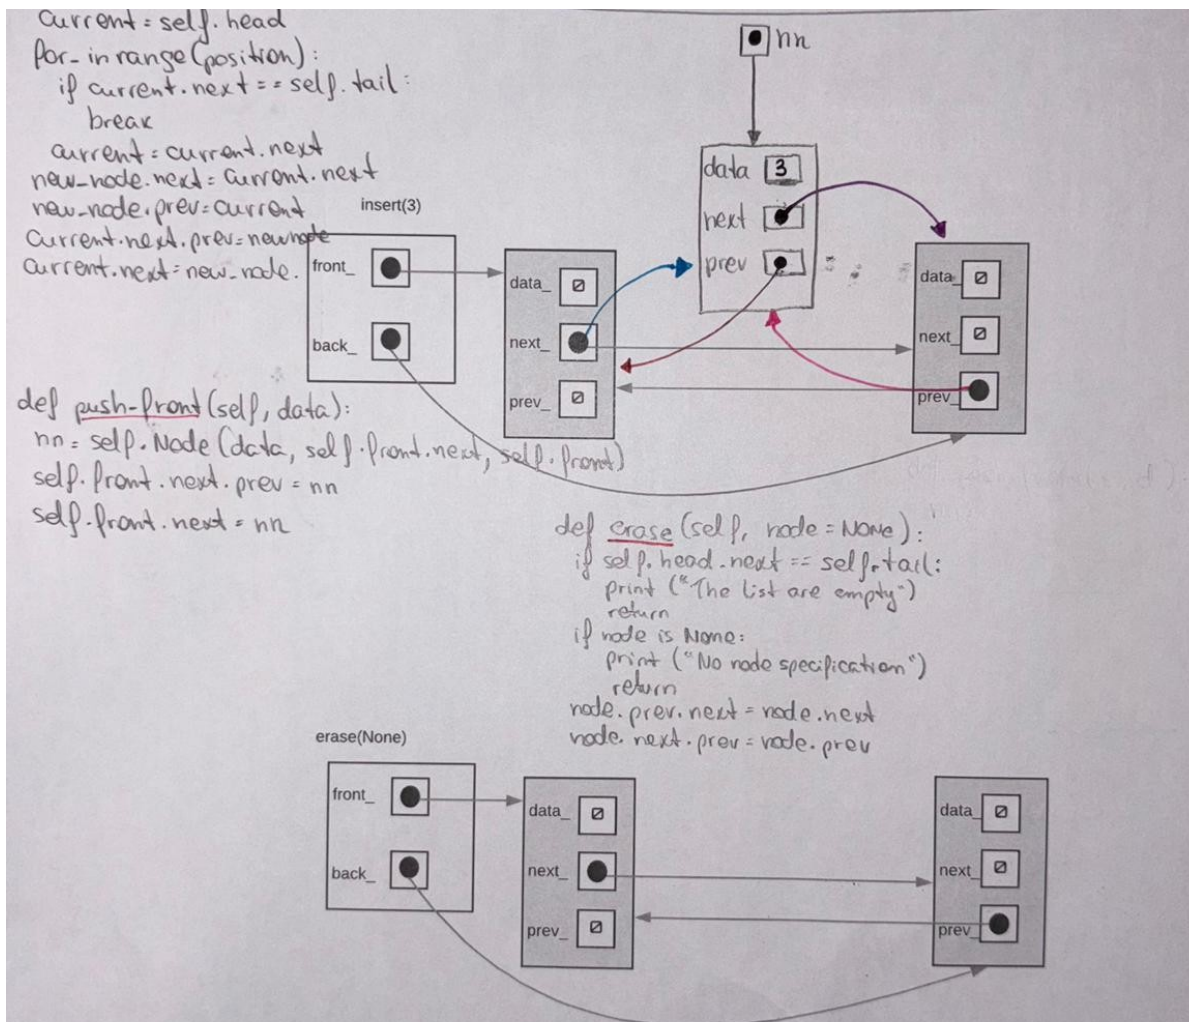 current = self.head
for _ in range(position):
if current.next == self.tail:
break
current = current.next
new_node.next = current.next
new_node.prev = current
current.next.prev = newnode
current.next = new_node.
insert(3)
nn
data 3
next
prev
front_
back_
data_
next_
prev_
data_
next_
prev_
def push-front(self, data):
nn = self.Node(data, self.front.next, self.front)
self.front.next.prev = nn
self.front.next = nn
def erase(self, node = None):
if self.head.next == self.tail:
print ("The list are empty")
return
if node is None:
print ("No node specification")
return
node.prev.next = node.next
node.next.prev = node.prev
erase(None)
front_
back_
data_
next_
prev_
data_
next_
prev_